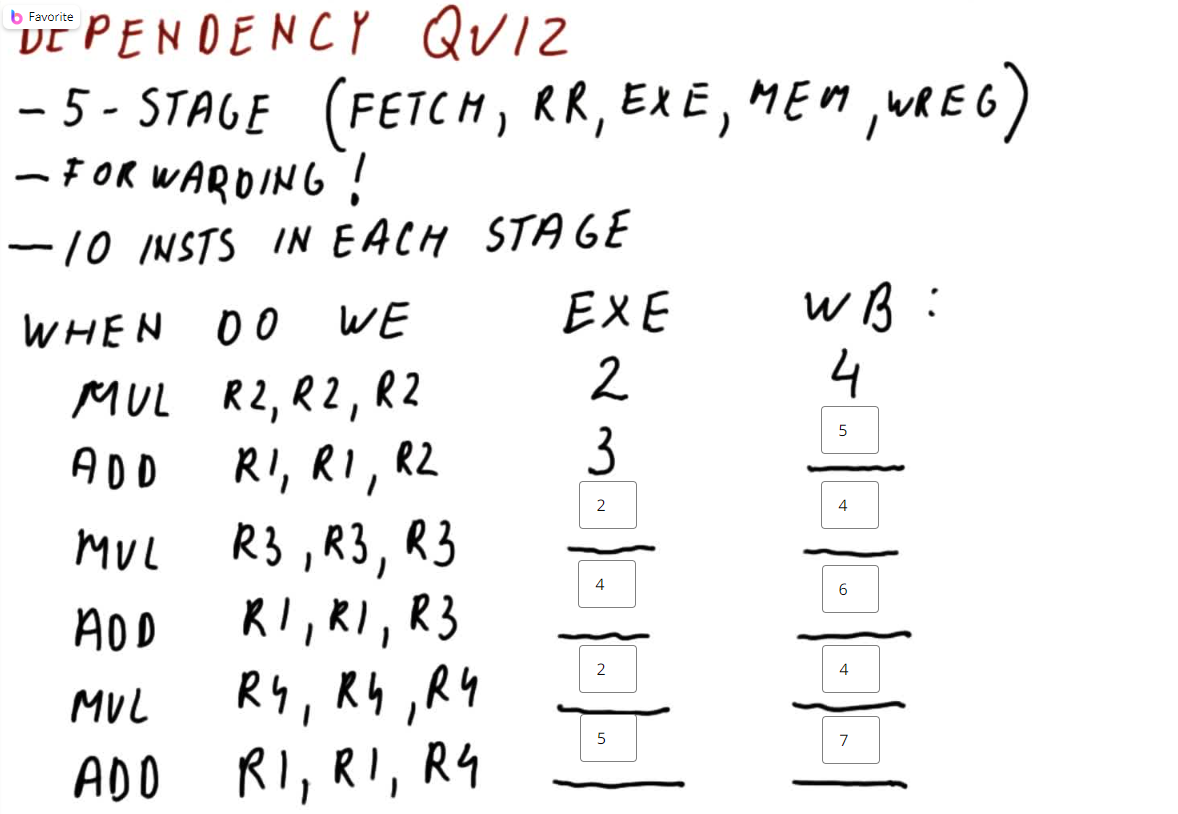 Favorite
DEPENDENCY QUIZ
- 5 - STAGE (FETCH, RR, EXE, MEM, WREG)
- FORWARDING!
- 10 INSTS IN EACH STAGE
WHEN DO WE EXE WB:
MUL R2, R2, R2 2 4
ADD R1, R1, R2 3 5
MUL R3, R3, R3 2 4
ADD R1, R1, R3 4 6
MUL R4, R4, R4 2 4
ADD R1, R1, R4 5 7